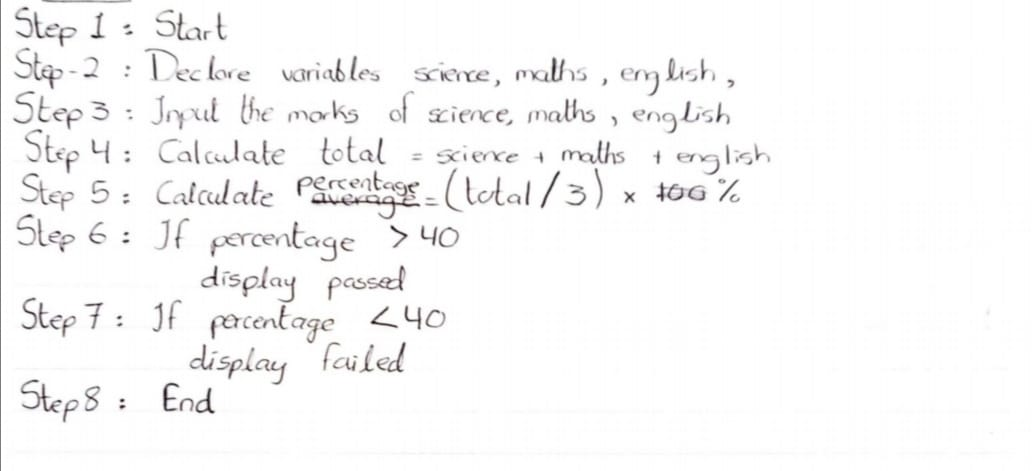 Step 1 : Start
Step-2 : Declare variables science, maths, english,
Step 3 : Input the marks of science, maths, english
Step 4 : Calculate total = science + maths + english
Step 5 : Calculate percentage average = (total / 3) × 100 %
Step 6 : If percentage > 40
display passed
Step 7 : If percentage < 40
display failed
Step 8 : End